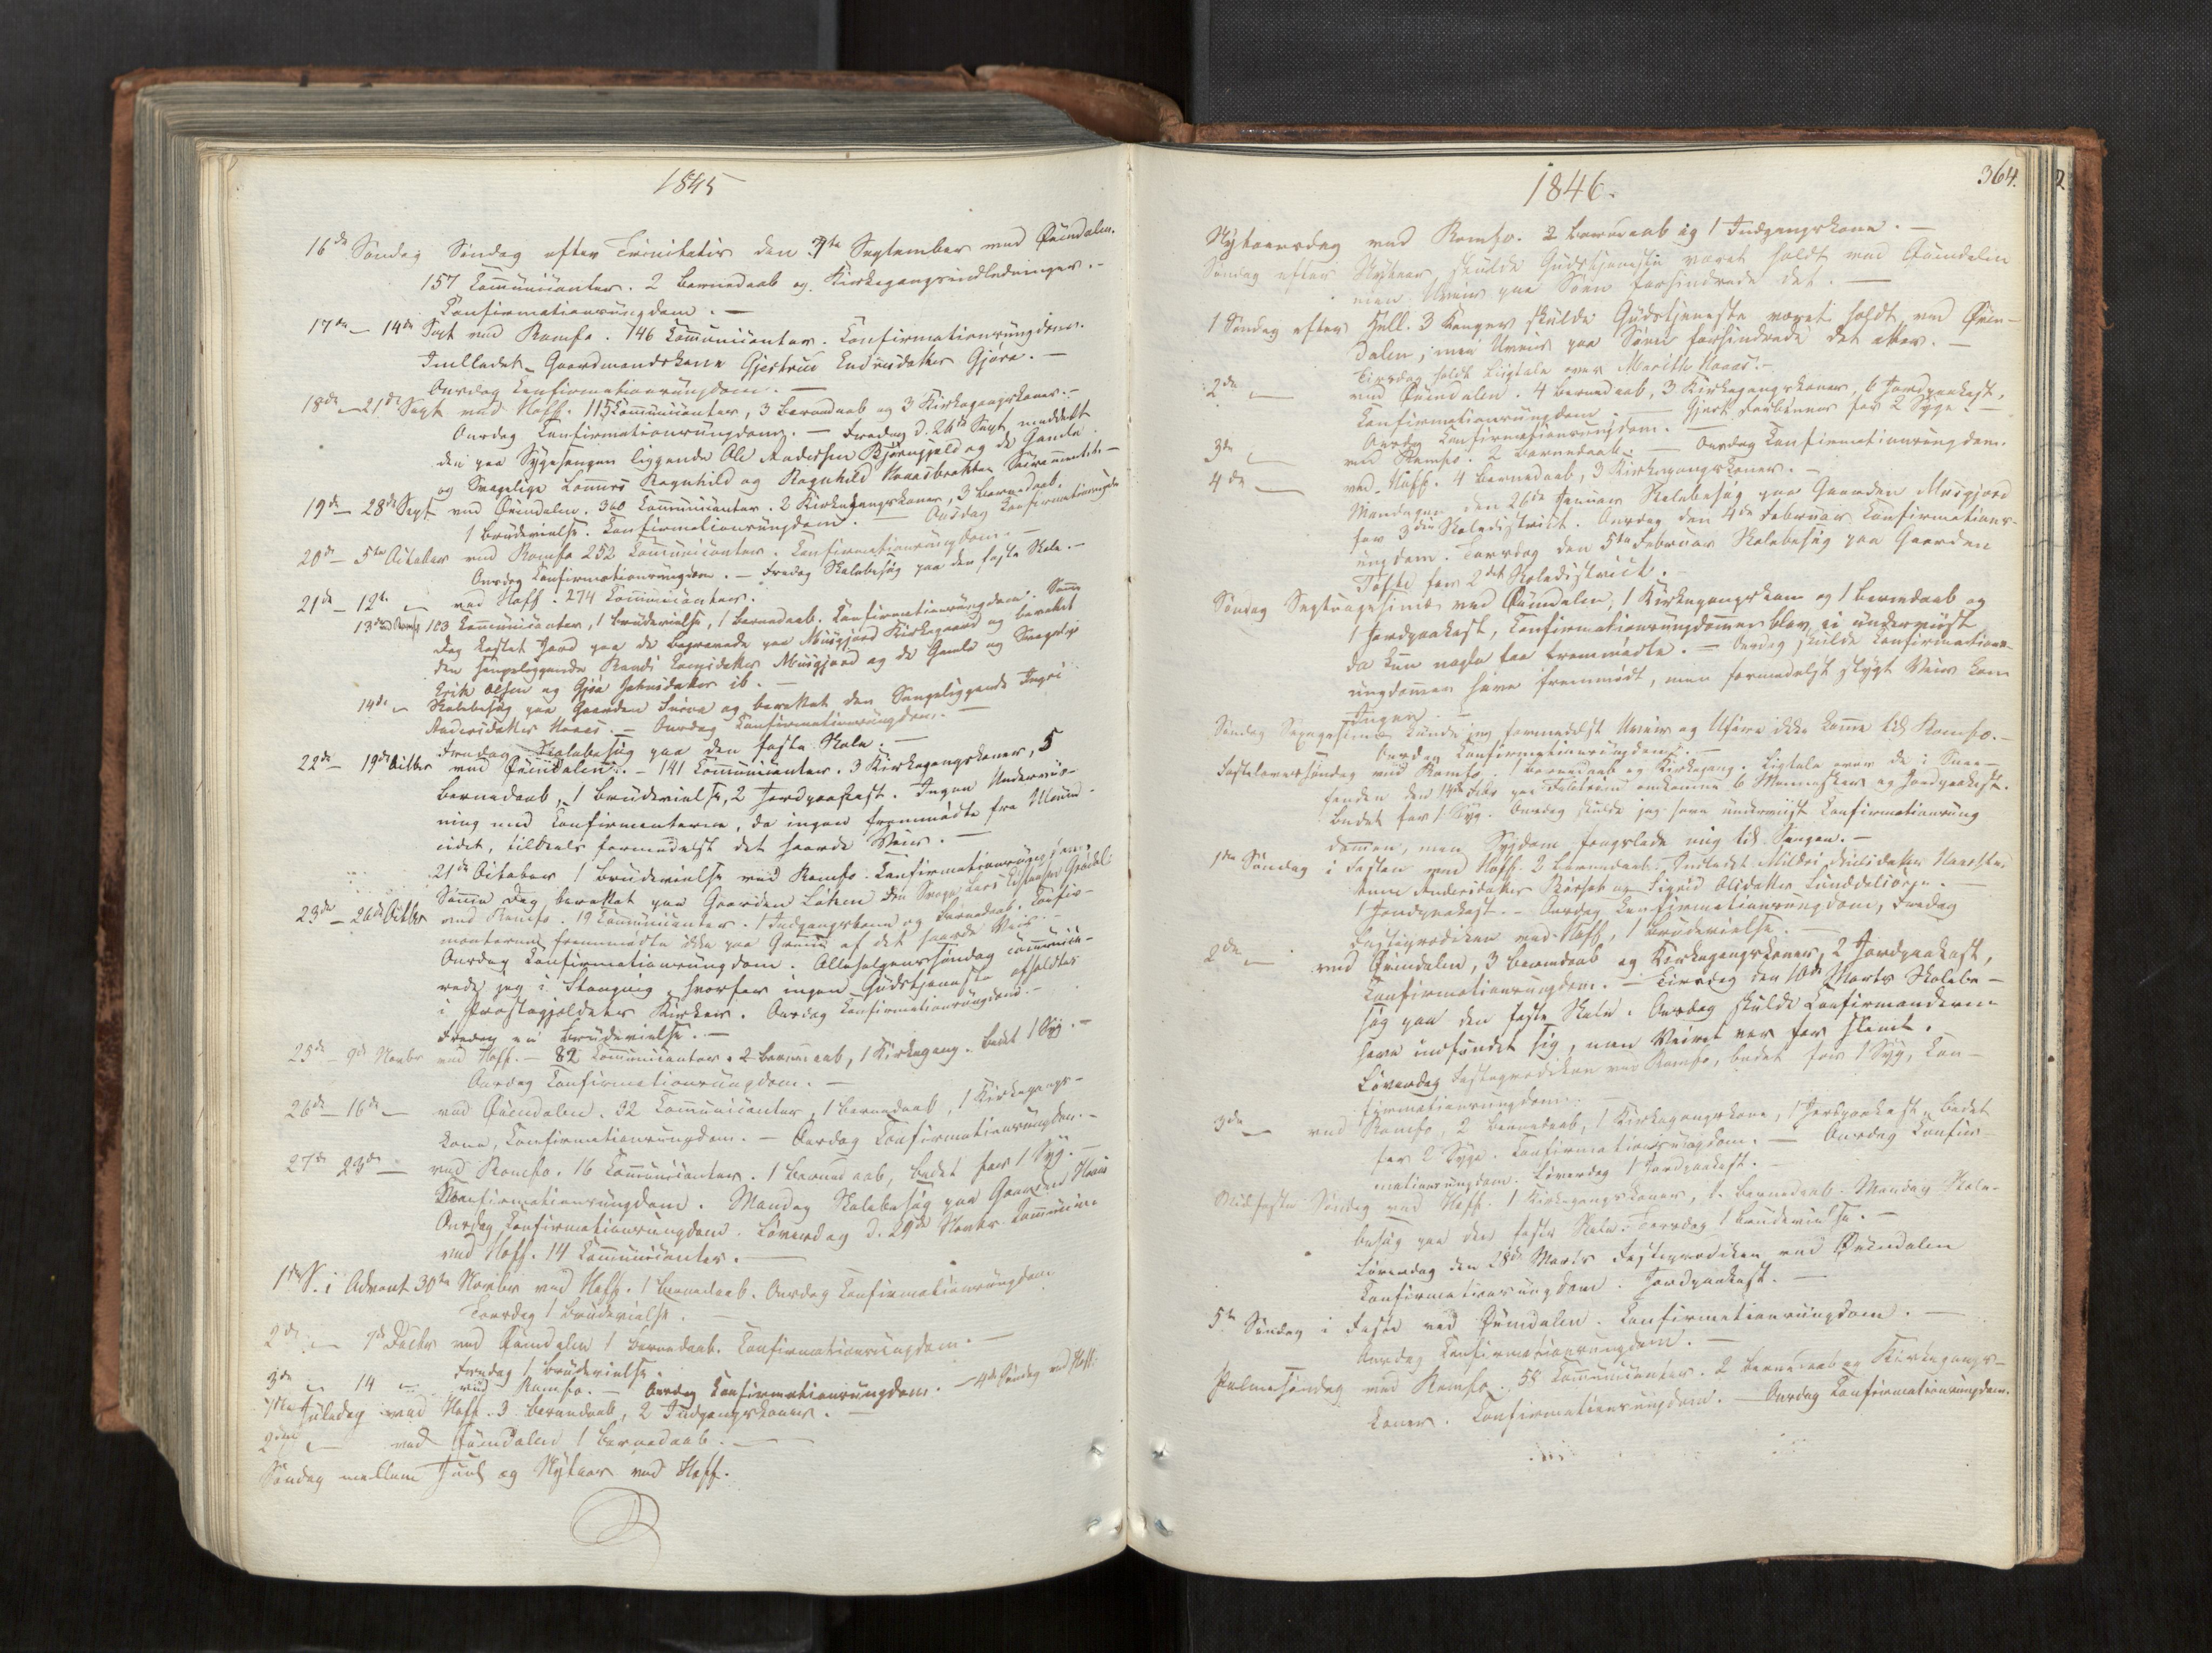 1845
16de Søndag Søndag efter Trinitatis den 7te September ved Øxendalen.
157 Communicanter. 2 Barnedaab og Kirkegangsindledninger. -
Confirmationsungdom. -
17de - 14de Sept ved Romfo. 146 Communicanter. Confirmationsungdom.
Indledet Gaardmandskone Gjertrud Endresdatter Gjøra. -
Onsdag Confirmationsungdom. -
18de - 21de Sept ved Hoff. 115 Communicanter, 3 Barnedaab og 3 Kirkegangskoner. -
Onsdag Confirmationsungdom. - Fredag d. 26de Sept meddelt
den paa Sygesengen liggende Ole Andersen Bjørnhjell og de Gamle
og Svagelige Ragnhild og Ragnhild Sacramentet. -
19de - 28de Sept ved Øxendalen. 360 Communicanter. 2 Kirkegangskoner, 3 Barnedaab.
1 Brudevielse. Confirmationsungdom. - Onsdag Confirmationsungdom
20de - 5te October ved Romfo 252 Communicanter. Confirmationsungdom. -
Onsdag Confirmationsungdom. - Fredag Skolebesøg paa den faste Skole. -
21de - 12te - ved Hoff. 274 Communicanter.
13de ved Romfo 103 Communicanter, 1 Brudevielse, 1 Barnedaab. Confirmationsungdom. Samme
Dag kastet Jord paa de Begravede paa Musgjerd Kirkegaard og berettet
den sengeliggende Randi Larsdatter Musgjerd og de Gamle og Svagelige
Erik Olsen og Gjøa Johnsdatter ib. -
14de - Skolebesøg paa Gaarden Furu og berettet den Sengeliggende Ingri
Andersdatter Hoaas. - Onsdag Confirmationsungdom. -
Fredag Skolebesøg paa den faste Skole. -
22de - 19de Octbr ved Øxendalen. - 141 Communicanter. 3 Kirkegangskoner, 5
Barnedaab, 1 Brudevielse, 2 Jordpaakast. Ingen Underviis-
ning med Confirmanterne, da ingen fremmødte fra
, tildeels formedelst det haarde Veir. -
21de October 1 Brudevielse ved Romfo. Confirmationsungdom.
Samme Dag berettet paa Gaarden Løken den Svage Lars
23de - 26de Octbr ved Romfo. 19 Communicanter. 1 Indgangskone og Barnedaab. Confir-
manterne fremmødte ikke paa Grund af det haarde Veir. -
Onsdag Confirmationsungdom. Allehelgenssøndag communice-
rede jeg i Stangvig, hvorfor ingen Gudstjeneste afholdtes
i Præstegjeldets Kirker. Onsdag Confirmationsungdom. -
Fredag en Brudevielse. -
25de - 9de Novbr ved Hoff. - 82 Communicanter. 2 Barnedaab, 1 Kirkegang. Bedet 1 Syg. -
Onsdag Confirmationsungdom. -
26de - 16de - ved Øxendalen. 32 Communicanter, 1 Barnedaab, 1 Kirkegangs-
kone, Confirmationsungdom. - Onsdag Confirmationsungdom. -
27de 23de - ved Romfo. 16 Communicanter. 1 Barnedaab, bedet for 1 Syg. -
Confirmationsungdom. Mandag Skolebesøg paa Gaarden Hoaas
Onsdag Confirmationsungdom. Løverdag d. 29de Novbr Communion
ved Hoff. 14 Communicanter. -
1ste S. i Advent 30te Novbr ved Hoff. 1 Barnedaab. Onsdag Confirmationsungdom
Torsdag 1 Brudevielse. -
2de - 7de Decbr ved Øxendalen 1 Barnedaab. Confirmationsungdom. -
Fredag 1 Brudevielse.
3de - 14 - ved Romfo. - Onsdag Confirmationsungdom. - 4de Søndag ved Hoff.
1ste Juledag ved Hoff. 3 Barnedaab, 2 Indgangskoner. -
2den - ved Øxendalen 1 Barnedaab. -
Søndag mellem Juul og Nytaar ved Hoff.
1846.
364.
Nytaarsdag ved Romfo. 2 Barnedaab og 1 Indgangskone. -
Søndag efter Nytaar skulde Gudstjenesten været holdt ved Øxendalen
men Uveir paa Søen forhindrede det. -
1 Søndag efter Hell. 3 Konger skulde Gudstjeneste været holdt ved Øxen-
dalen, men Uveir paa Søen forhindrede det atter. -
Tirsdag holdt Liigtale over Marith Hoaas. -
2de - ved Øxendalen. 4 Barnedaab, 3 Kirkegangskoner, 6 Jordpaakast,
Confirmationsungdom - Gjort Forbønner for 2 Syge. -
Onsdag Confirmationsungdom. -
3de - ved Romfo. 2 Barnedaab. - Onsdag Confirmationsungdom.
4de - ved Hoff. 4 Barnedaab, 3 Kirkegangskoner. -
Mandagen den 26de Januar Skolebesøg paa Gaarden Musgjerd
for 3die Skoledistrict. Onsdag den 4de Februar Confirmations-
ungdom. Torsdag den 5te Februar Skolebesøg paa Gaarden
Tofte for 2det Skoledistrict. -
Søndag Septuagesima ved Øxendalen, 1 Kirkegangskone og 1 Barnedaab og
1 Jordpaakast, Confirmationsungdommen blev ei underviist
da kun nogle faa fremmødte. - Onsdag skulde Confirmations-
ungdommen have fremmødt, men formedelst stygt Veir kom
Ingen. -
Søndag Sexagesima kunde jeg formedelst Uveir og Uføre ikke komme til Romfo. -
Onsdag Confirmationsungdom. -
Fastelavnssøndag ved Romfo. 1 Barnedaab og Kirkegang. Ligtale over de i Snee-
fonden den 14de Febr paa omkomne 6 Mennesker og Jordpaakast.
Bedet for 1 Syg. Onsdag skulde jeg have underviist Confirmationsung
dommen, men Sygdom fengslede mig til Sengen. -
1ste Søndag i Fasten ved Hoff. 2 Barnedaab. Indledet Mildri
Anne Andersdatter og Sigrid Olsdatter
1 Jordpaakast. - Onsdag Confirmationsungdom, Fredag
Fasteprædiken ved Hoff, 1 Brudevielse. -
2de - ved Øxendalen, 3 Barnedaab og Kirkegangskoner, 2 Jordpaakast,
Confirmationsungdom. - Tirsdag den 10de Marts Skolebe-
søg paa den faste Skole. Onsdag skulde Confirmanderne
have indfundet sig, men Veiret var for slemt.
Løverdag Fasteprædiken ved Romfo, bedet for 1 Syg, Con-
firmationsungdom. -
3de - ved Romfo, 2 Barnedaab, 1 Kirkegangskone, 1 Jordpaakast. Bedet
for 2 Syge. Confirmationsungdom. - Onsdag Confir-
mationsungdom. Løverdag 1 Jordpaakast. -
Midfaste Søndag ved Hoff. 1 Kirkegangskoner, 1 Barnedaab. Mandag Skole-
besøg paa den faste Skole. Torsdag 1 Brudevielse. -
Løverdag den 28de Marts Fasteprædiken ved Øxendalen
Confirmationsungdom. Jordpaakast. -
5te Søndag i Faste ved Øxendalen. Confirmationsungdom. -
Onsdag Confirmationsungdom. -
Palmesøndag ved Romfo. 58 Communicanter. 2 Barnedaab og Kirkegangs-
koner. Confirmationsungdom. - Onsdag Confirmationsungdom.